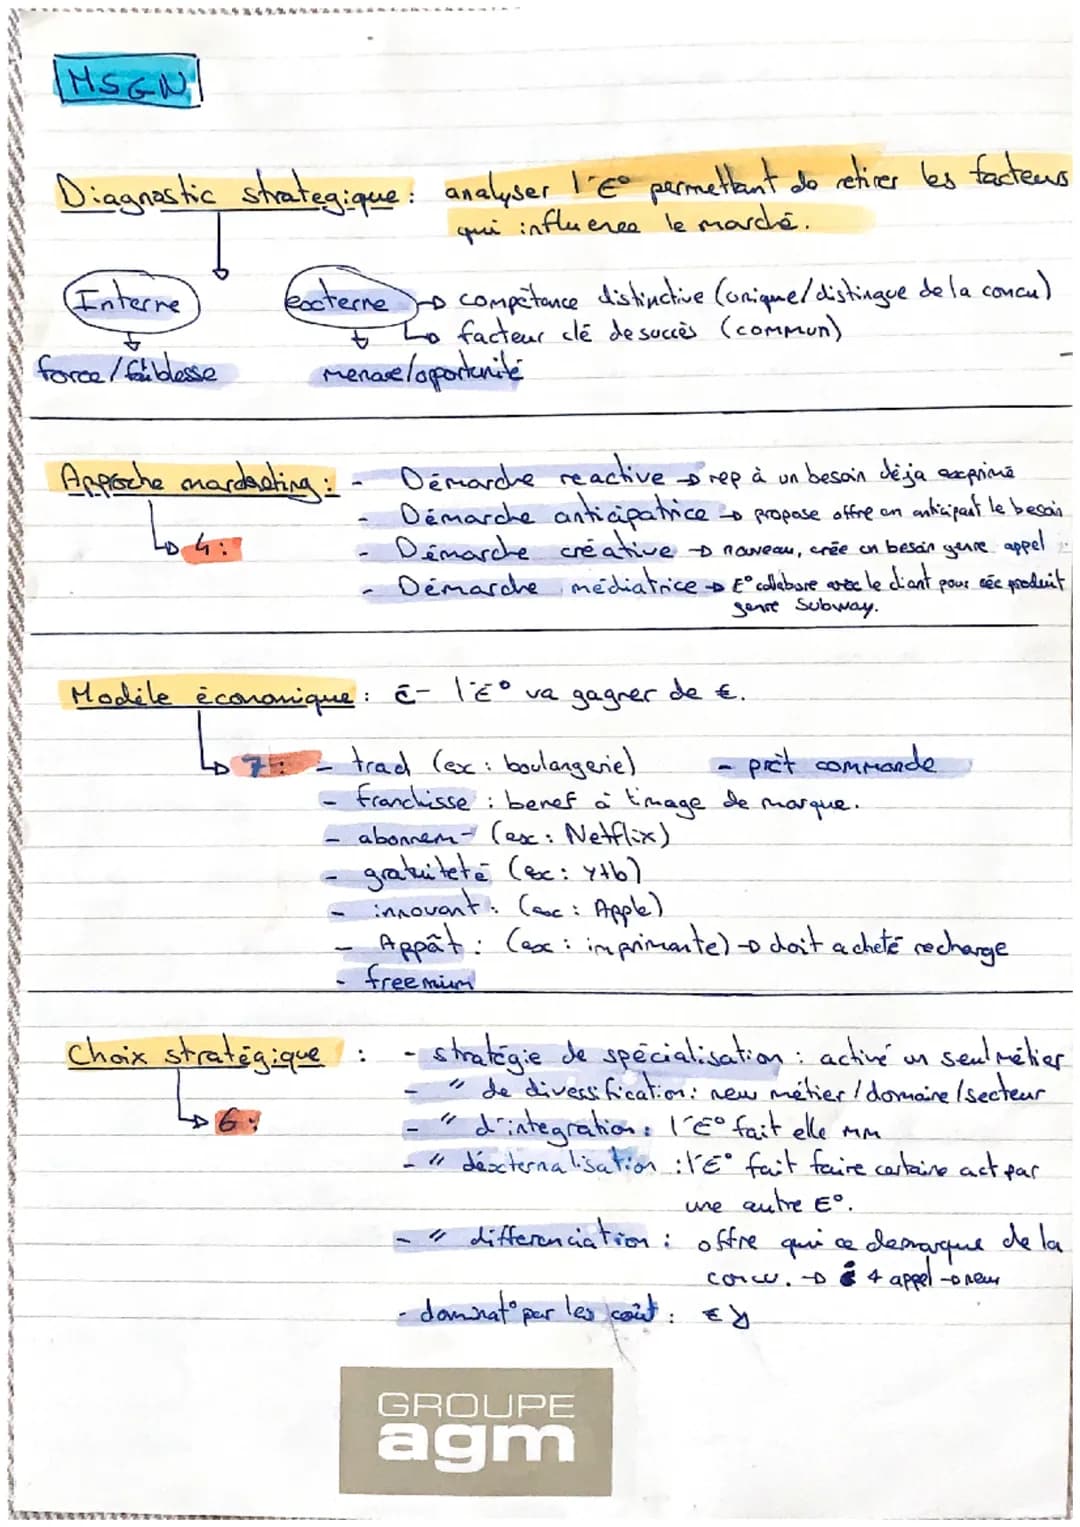 MSGN
Diagnostic strategique : analyser l'E° permettant de retirer les facteurs
qui influence le marché.
Interne
externe → compétance distinctive (unique/distingue de la concu)
↳ facteur clé de succès (commun)
force/faiblesse menace/oportunité
Approche marcketing : - Démarche reactive → rep à un besoin déja exprimé
↳ 4 : - Démarche anticipatrice → propose offre en anticipant le besoin
- Démarche créative → nouveau, crée un besoin genre appel
- Démarche médiatrice → E° collabore avec le client pour créé produit
genre Subway.
Modèle économique : c̄- l'E° va gagner de €.
↳ 7 : - trad (ex : boulangerie) - prêt commande
- franchisse : benef à l'image de marque.
- abonnem- (ex : Netflix)
- gratuiteté (ex : ytb)
- innovant : (ex : Apple)
- Appât : (ex : imprimante) → doit acheté recharge
- freemium
Choix stratégique : - stratégie de spécialisation : activé un seul métier
- " de diversification : new métier/domaine/secteur
↳ 6 : - " d'intégration : l'E° fait elle mm
- " déxternalisation : l'E° fait faire certaine act par
une autre E°.
- " differenciation : offre qui ce demarque de la
concu. → 4 appel → new
- dominat° par les coût : € ↘
GROUPE
agm